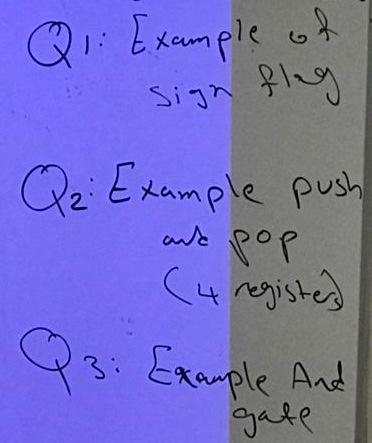 Q1: Example of
sign flag
Q2: Example push
and pop
(4 register)
Q3: Example And
gate